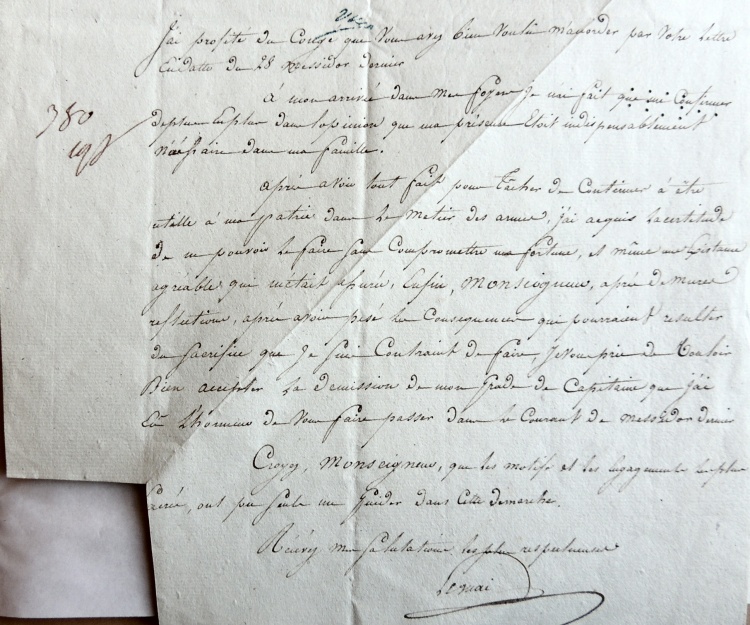 J'ai profité du Congé que Vous avez bien Voulu m'accorder par Votre Lettre
En datte du 28 messidor dernier
380
198
À mon arrivée dans mes foyers Je n'ai fait que me Confirmer
deplus Enplus dans l'opinion que ma présence Etoit indispensablement
nécéssaire dans ma famille.
après avoir tout fait pour Tâcher de Continuer à être
utille à ma patrie dans le métier des armes, j'ai acquis la certitude
de ne pouvoir le faire sans Compromettre ma fortune, et même une Existance
agréable qui m'etait assurée, Enfin, Monseigneur, après de mures
reflections, après avoir pesé les Consequences qui pourraient resulter
du sacrifice que Je suis Contraint de faire, Je Vous prie de Vouloir
Bien accepter la demission de mon grade de Capitaine que j'ai
Eû L'honneur de Vous faire passer dans le Courant de messidor dernier
Croyez, Monseigneur, que les motifs et les Engagements les plus
sacrés, ont pu seuls me Guider dans Cette demarche.
Recevez mes salutations les plus respectueuses